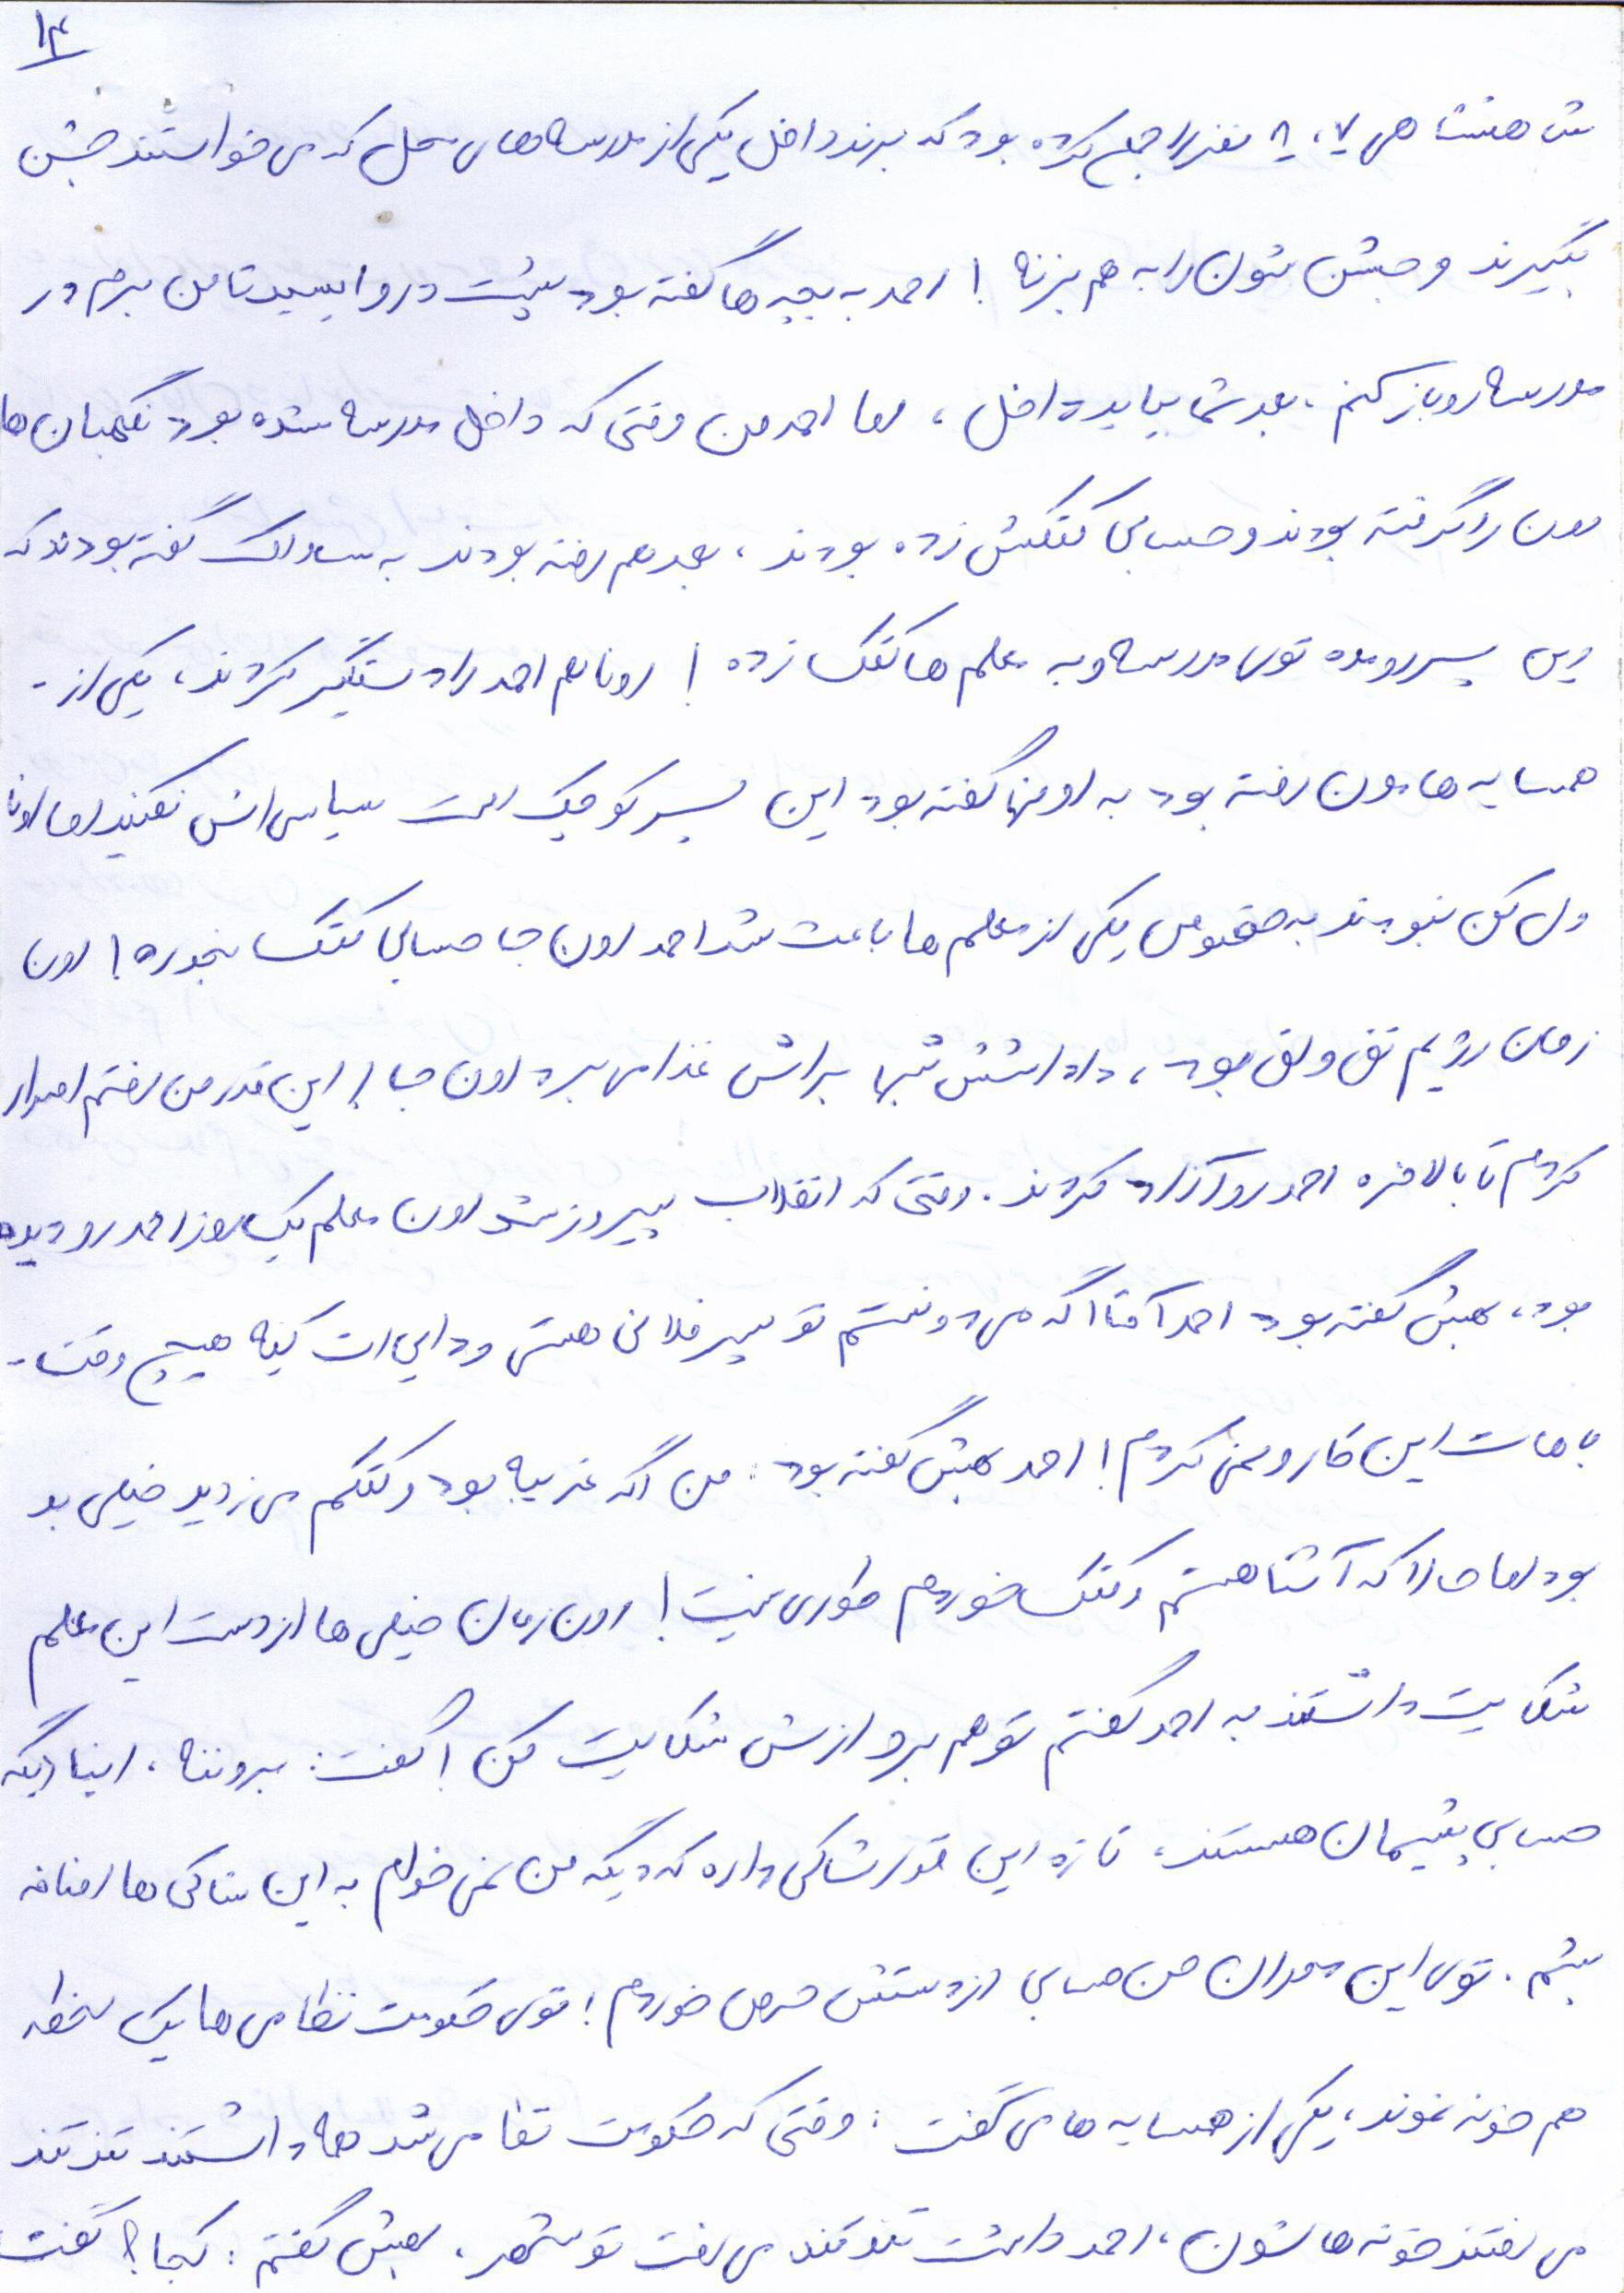 ۱۴
شاهنشاهی ۷، ۸ نفر را جمع کرده بود که برند داخل یکی از مدرسه های محل که می خواستند جشن
بگیرند و جشن شون را به هم بزنه ! احمد به بچه ها گفته بود پشت در وایسید تا من برم در
مدرسه رو باز کنم . بعد شما بیاید داخل ، اما احمد من وقتی که داخل مدرسه شده بود نگهبان ها
اون را گرفته بودند و حسابی کتکش زده بودند ، بعد هم رفته بودند به ساواک گفته بودند که
این پسر اومده توی مدرسه و به معلم ها کتک زده ! اونا هم احمد را دستگیر کردند ، یکی از -
همسایه هامون رفته بود به اونها گفته بود این پسر کوچیک است سیاسی اش نکنید اما اونا
ول کن نبودند به خصوص یکی از معلم ها باعث شد احمد اون جا حسابی کتک بخوره ! اون
زمان رژیم تق و لق بود ، داداشش شبها براش غذا می برد اون جا ! این قدر من رفتم اصرار
کردم تا بالاخره احمد رو آزاد کردند . وقتی که انقلاب پیروز شد اون معلم یک روز احمد رو دیده
بود ، بهش گفته بود احمد آقا اگه می دونستم تو پسر فلانی هستی و دایی ات کیه هیچ وقت -
باهات این کار و نمی کردم ! احمد بهش گفته بود : من اگه غریبه بود و کتکم می زدید خیلی بد
بود اما حالا که آشنا هستم و کتک خوردم طوری نیست ! اون زمان خیلی ها از دست این معلم
شکایت داشتند به احمد گفتم تو هم برو ازش شکایت کن ! گفت : برو ننه ، اینا دیگه
حسابی پشیمان هستند ، تازه این قدر شاکی داره که دیگه من نمی خوام به این شاکی ها اضافه
بشم . توی این دوران من حسابی از دستش حرص خوردم ! توی حکومت نظامی ها یک لحظه
هم خونه نموند ، یکی از همسایه ها می گفت : وقتی که حکومت نظامی شد همه داشتند تند تند
می رفتند خونه هاشون ، احمد داشت تند تند می رفت تو شهر ، بهش گفتم : کجا ؟ گفت